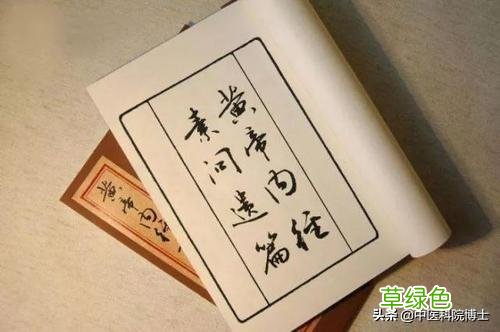 黄帝内经
素问遗篇
黄帝内经
草绿色
头条 @中医科院博士